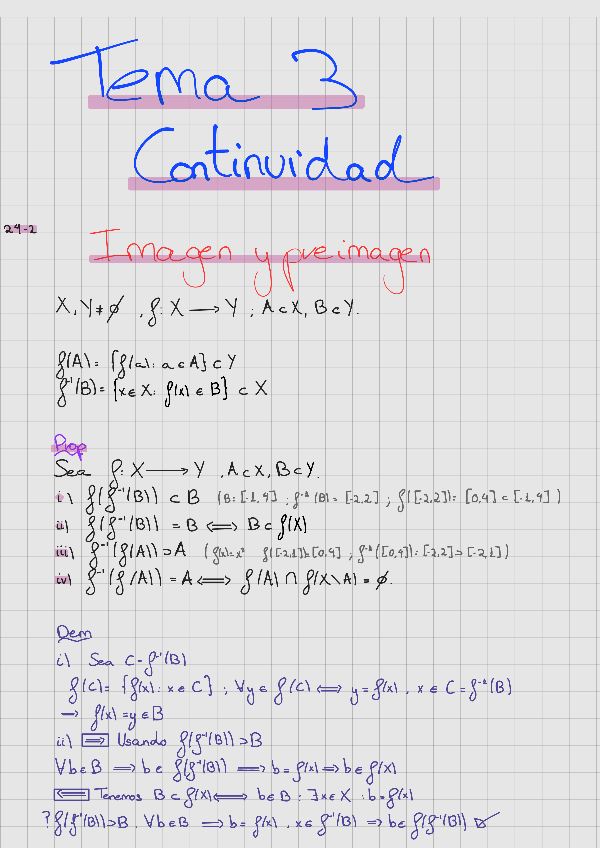 Tema 3
Continuidad
24-2
Imagen y preimagen
X, Y ≠ ∅ , f: X → Y ; A ⊂ X, B ⊂ Y.
f(A) = {f(a): a ∈ A} ⊂ Y
f⁻¹(B) = {x ∈ X: f(x) ∈ B} ⊂ X
Prop
Sea f: X → Y , A ⊂ X, B ⊂ Y.
i) f(f⁻¹(B)) ⊂ B (B = [-1,4] ; f⁻¹(B) = [-2,2] ; f([-2,2]) = [0,4] ⊂ [-1,4])
ii) f(f⁻¹(B)) = B ⟺ B ⊂ f(X)
iii) f⁻¹(f(A)) ⊃ A (f(x) = x² f([-2,1]) = [0,4] ; f⁻¹([0,4]) = [-2,2] ⊃ [-2,1])
iv) f⁻¹(f(A)) = A ⟺ f(A) ∩ f(X∖A) = ∅.
Dem
i) Sea C = f⁻¹(B)
f(C) = {f(x): x ∈ C} ; ∀y ∈ f(C) ⟺ y = f(x) , x ∈ C = f⁻¹(B)
→ f(x) = y ∈ B
ii) ⟹ Usando f(f⁻¹(B)) ⊃ B
∀b ∈ B ⟹ b ∈ f(f⁻¹(B)) ⟹ b = f(x) ⟹ b ∈ f(X)
⟸ Tenemos B ⊂ f(X) ⟺ b ∈ B : ∃x ∈ X : b = f(x)
? f(f⁻¹(B)) ⊃ B . ∀b ∈ B ⟹ b = f(x) , x ∈ f⁻¹(B) ⟹ b ∈ f(f⁻¹(B)) ☑